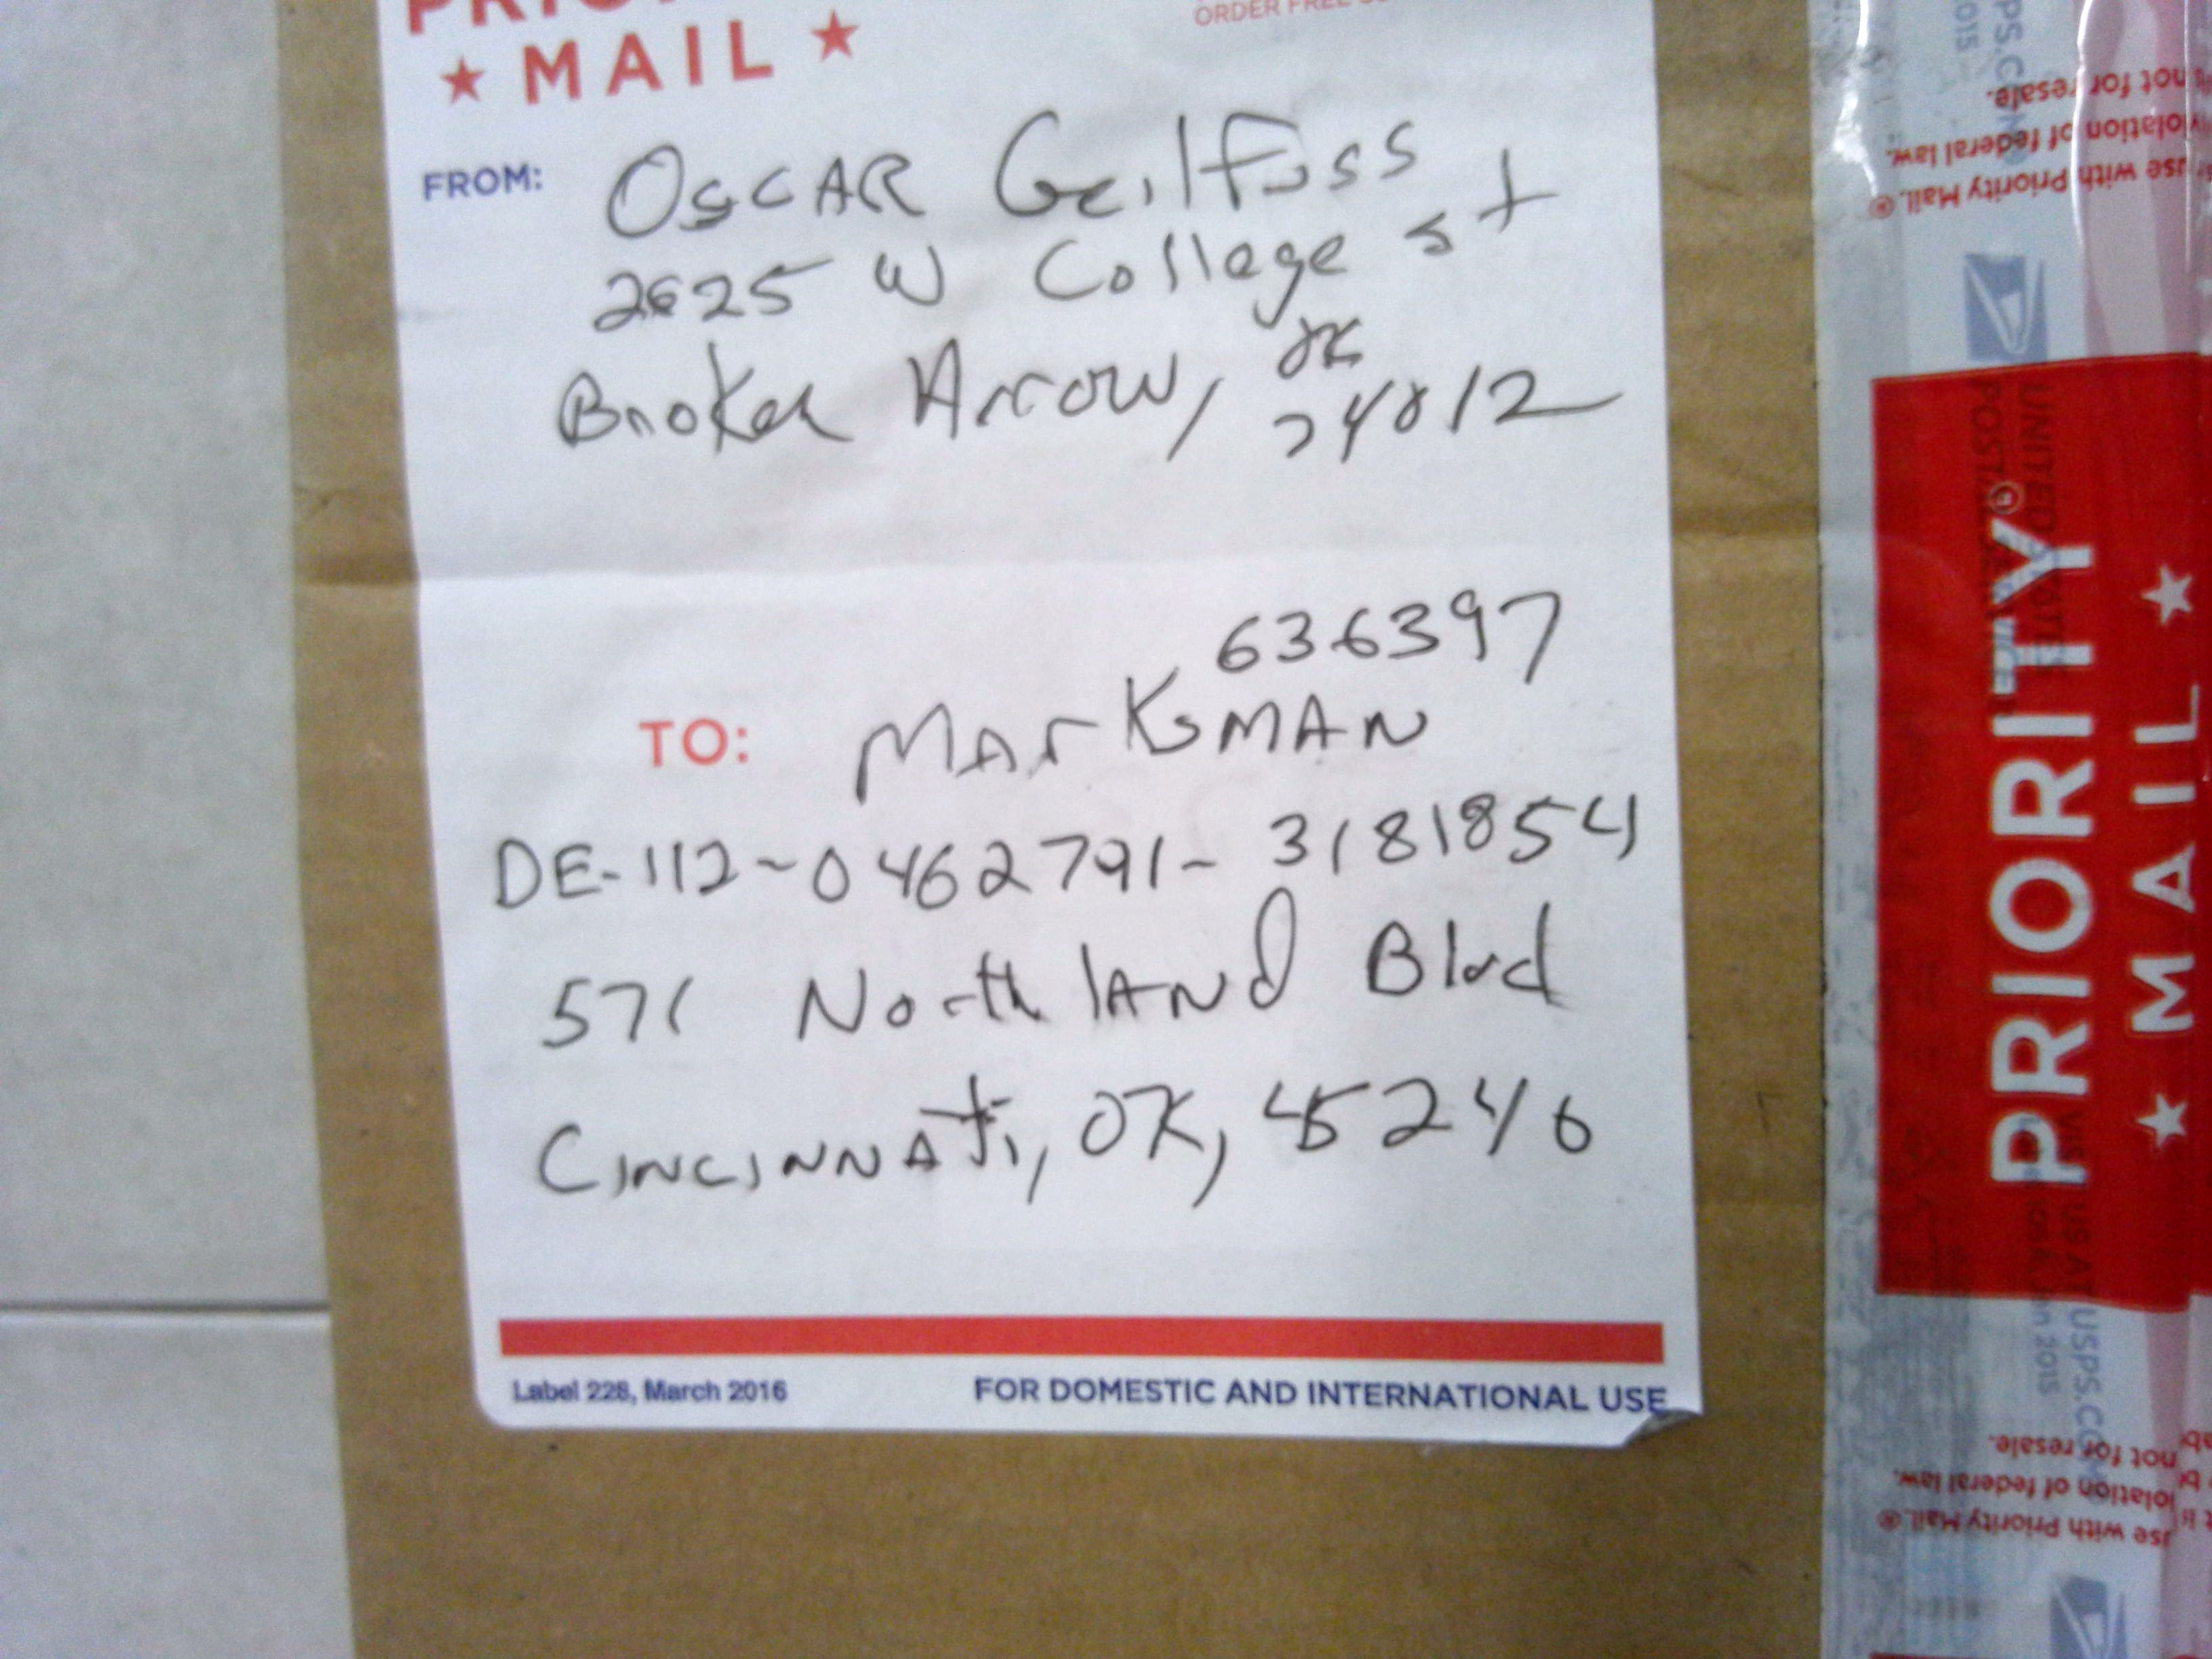 PRIORITY
★ MAIL ★
ORDER FREE
FROM: OSCAR Geilfuss
2625 W College st
Broken Arrow, OK
74012
636397
TO: MArKsMAN
DE-112-0462791-3181854
571 NorthlAND Blvd
CINCINNATi, OK, 45246
Label 228, March 2016
FOR DOMESTIC AND INTERNATIONAL USE
PRIORITY
★ MAIL ★
UNITED STATES
POSTAL SERVICE
VISIT US AT USPS.COM
not for resale.
violation of federal law.
use with Priority Mail.®
not for resale.
violation of federal law.
use with Priority Mail.®